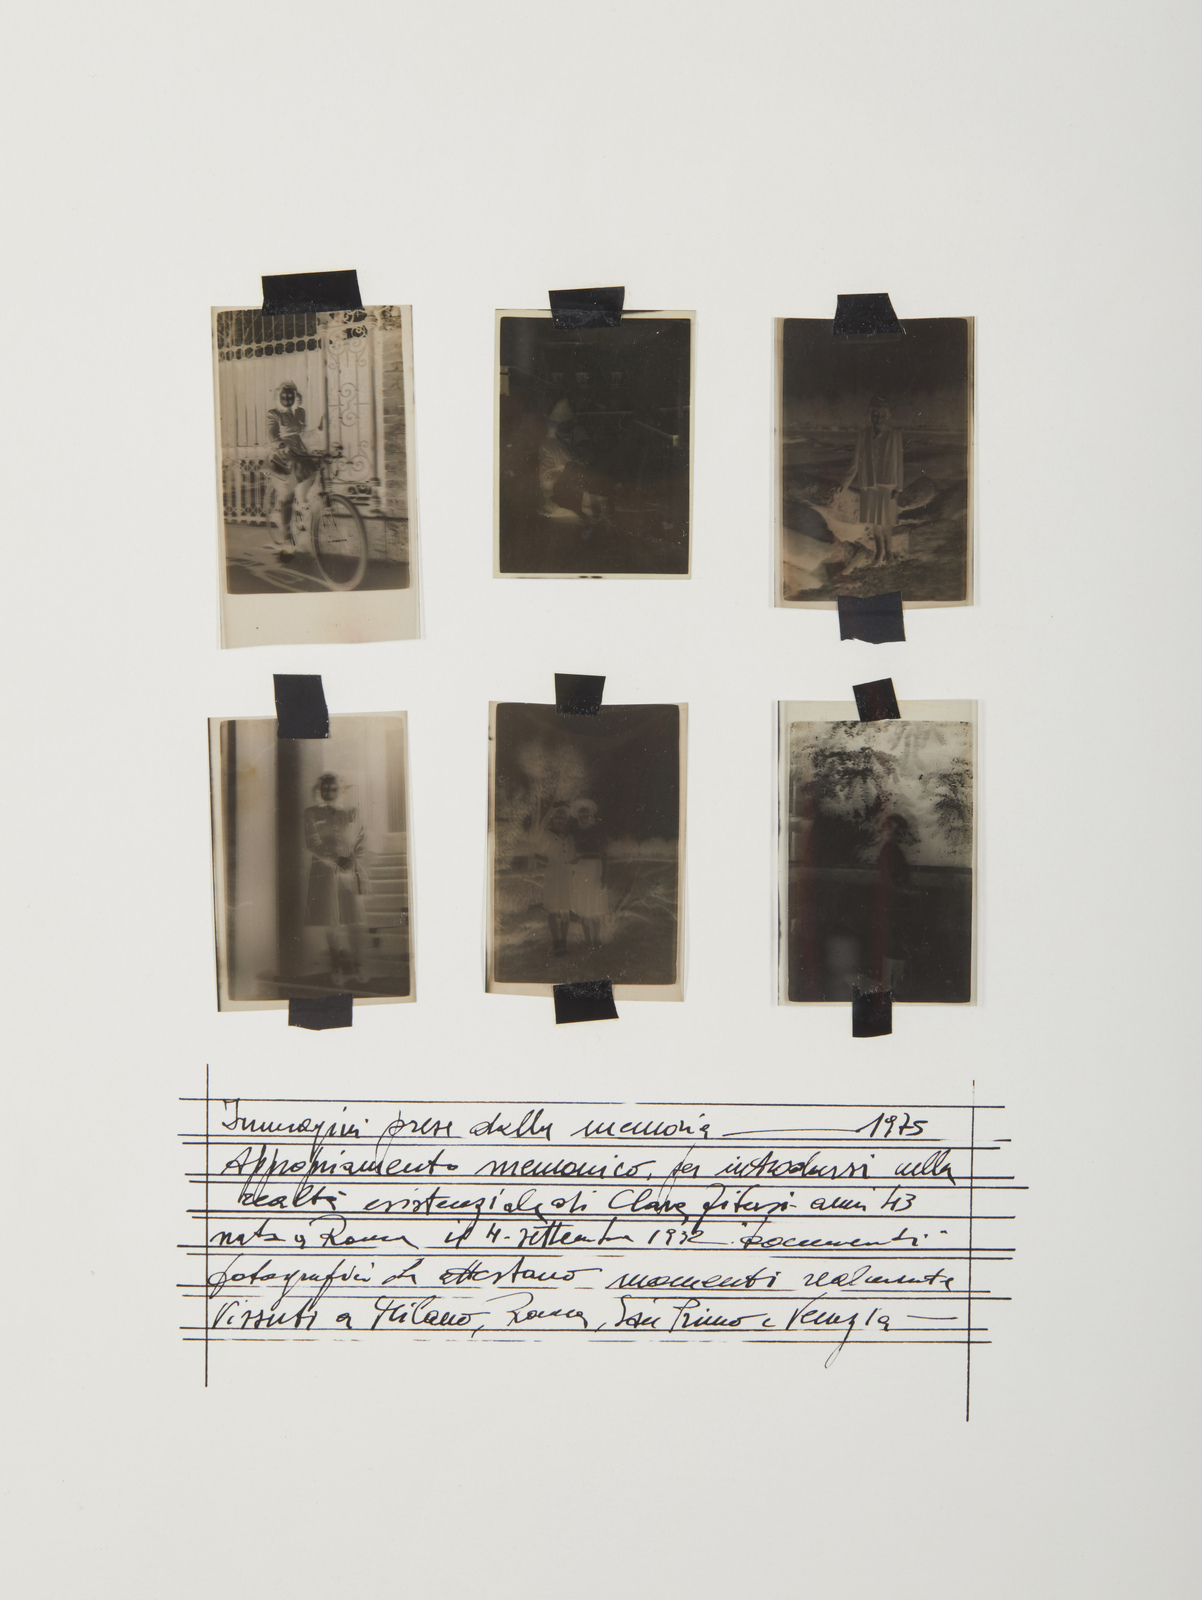 Immagini prese dalla memoria 1975
Appropriamento mnemonico, per introdursi nella
realtà esistenziale di Clara anni 43
nata a Roma il 4 settembre 1932 "Documenti"
fotografici che attestano momenti realmente
vissuti a Milano, Roma, San Primo e Venezia